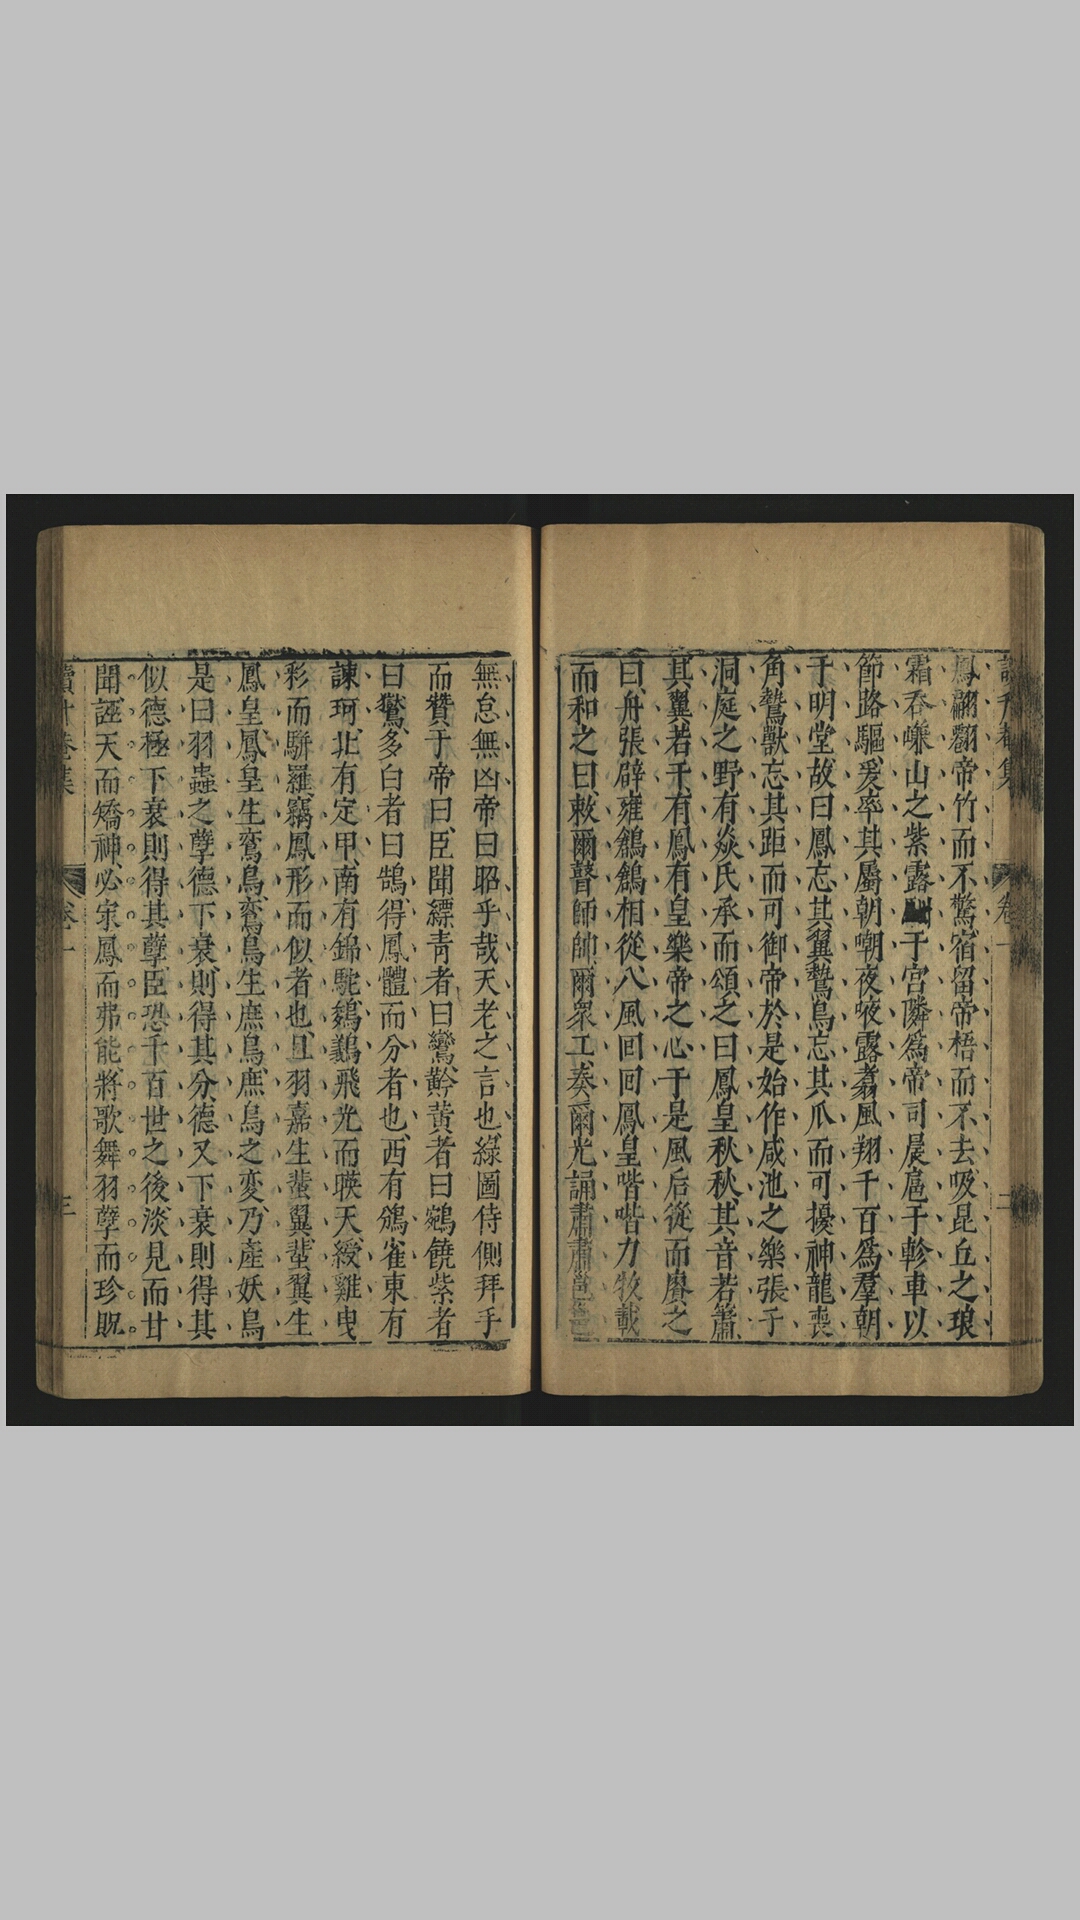 鳳翽翽帝竹而不驚宿留帝梧而不去吸昆丘之琅
霜吞嵰山之紫露于宫隣爲帝司晨扈于軫車以
節路驅爰率其屬朝嘲夜㖡露翥風翔千百爲羣朝
于明堂故曰鳳忘其翼鷙鳥忘其爪而可擾神龍喪
角鷙獸忘其距而可御帝於是始作咸池之樂張于
洞庭之野有焱氏承而頌之曰鳳皇秋秋其音若簫
其翼若干有鳳有皇樂帝之心于是風后從而賡之
曰舟張辟雍鶬鶬相從八風回回鳳皇喈喈力牧載
而和之曰敕爾瞽師帥爾衆工奏爾尤誦肅肅邕邕
卷一
二
無怠無凶帝曰昭乎哉天老之言也綠圖侍側拜手
而贊于帝曰臣聞縹青者曰鸞黅黄者曰鵷饒紫者
曰鷟多白者曰鵠得鳳體而分者也西有鵂雀東有
諫珂北有定甲南有錦駝鵕鸃飛光而暎天綬雞曳
彩而駢羅竊鳳形而似者也且羽嘉生蜚翼蜚翼生
鳳皇鳳皇生鸞鳥鸞鳥生庶鳥庶鳥之変乃產妖鳥
是曰羽蟲之孽德下衰則得其分德又下衰則得其
似德極下衰則得其孽臣恐千百世之後淡見而甘
聞誣天而矯神必宗鳳而弗能將歌舞羽孽而珍貺
卷一
三